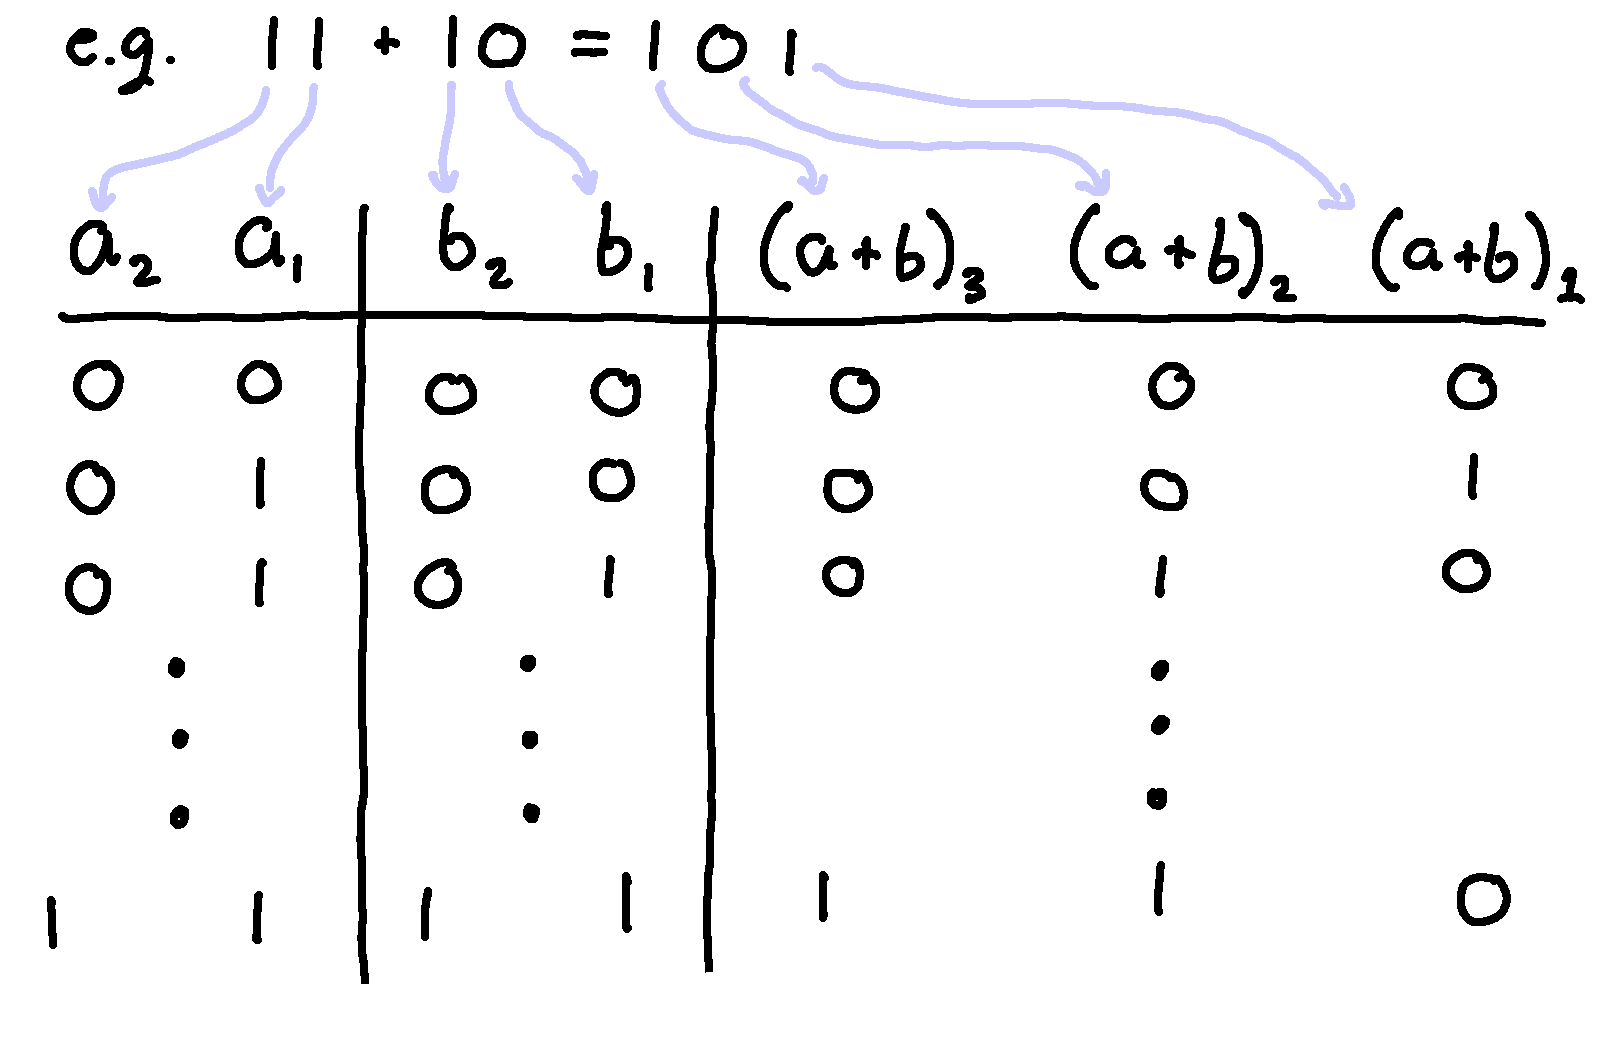 e.g. 11 + 10 = 101
a₂ a₁ b₂ b₁ (a+b)₃ (a+b)₂ (a+b)₁
0 0 0 0 0 0 0
0 1 0 0 0 0 1
0 1 0 1 0 1 0
1 1 1 1 1 1 0